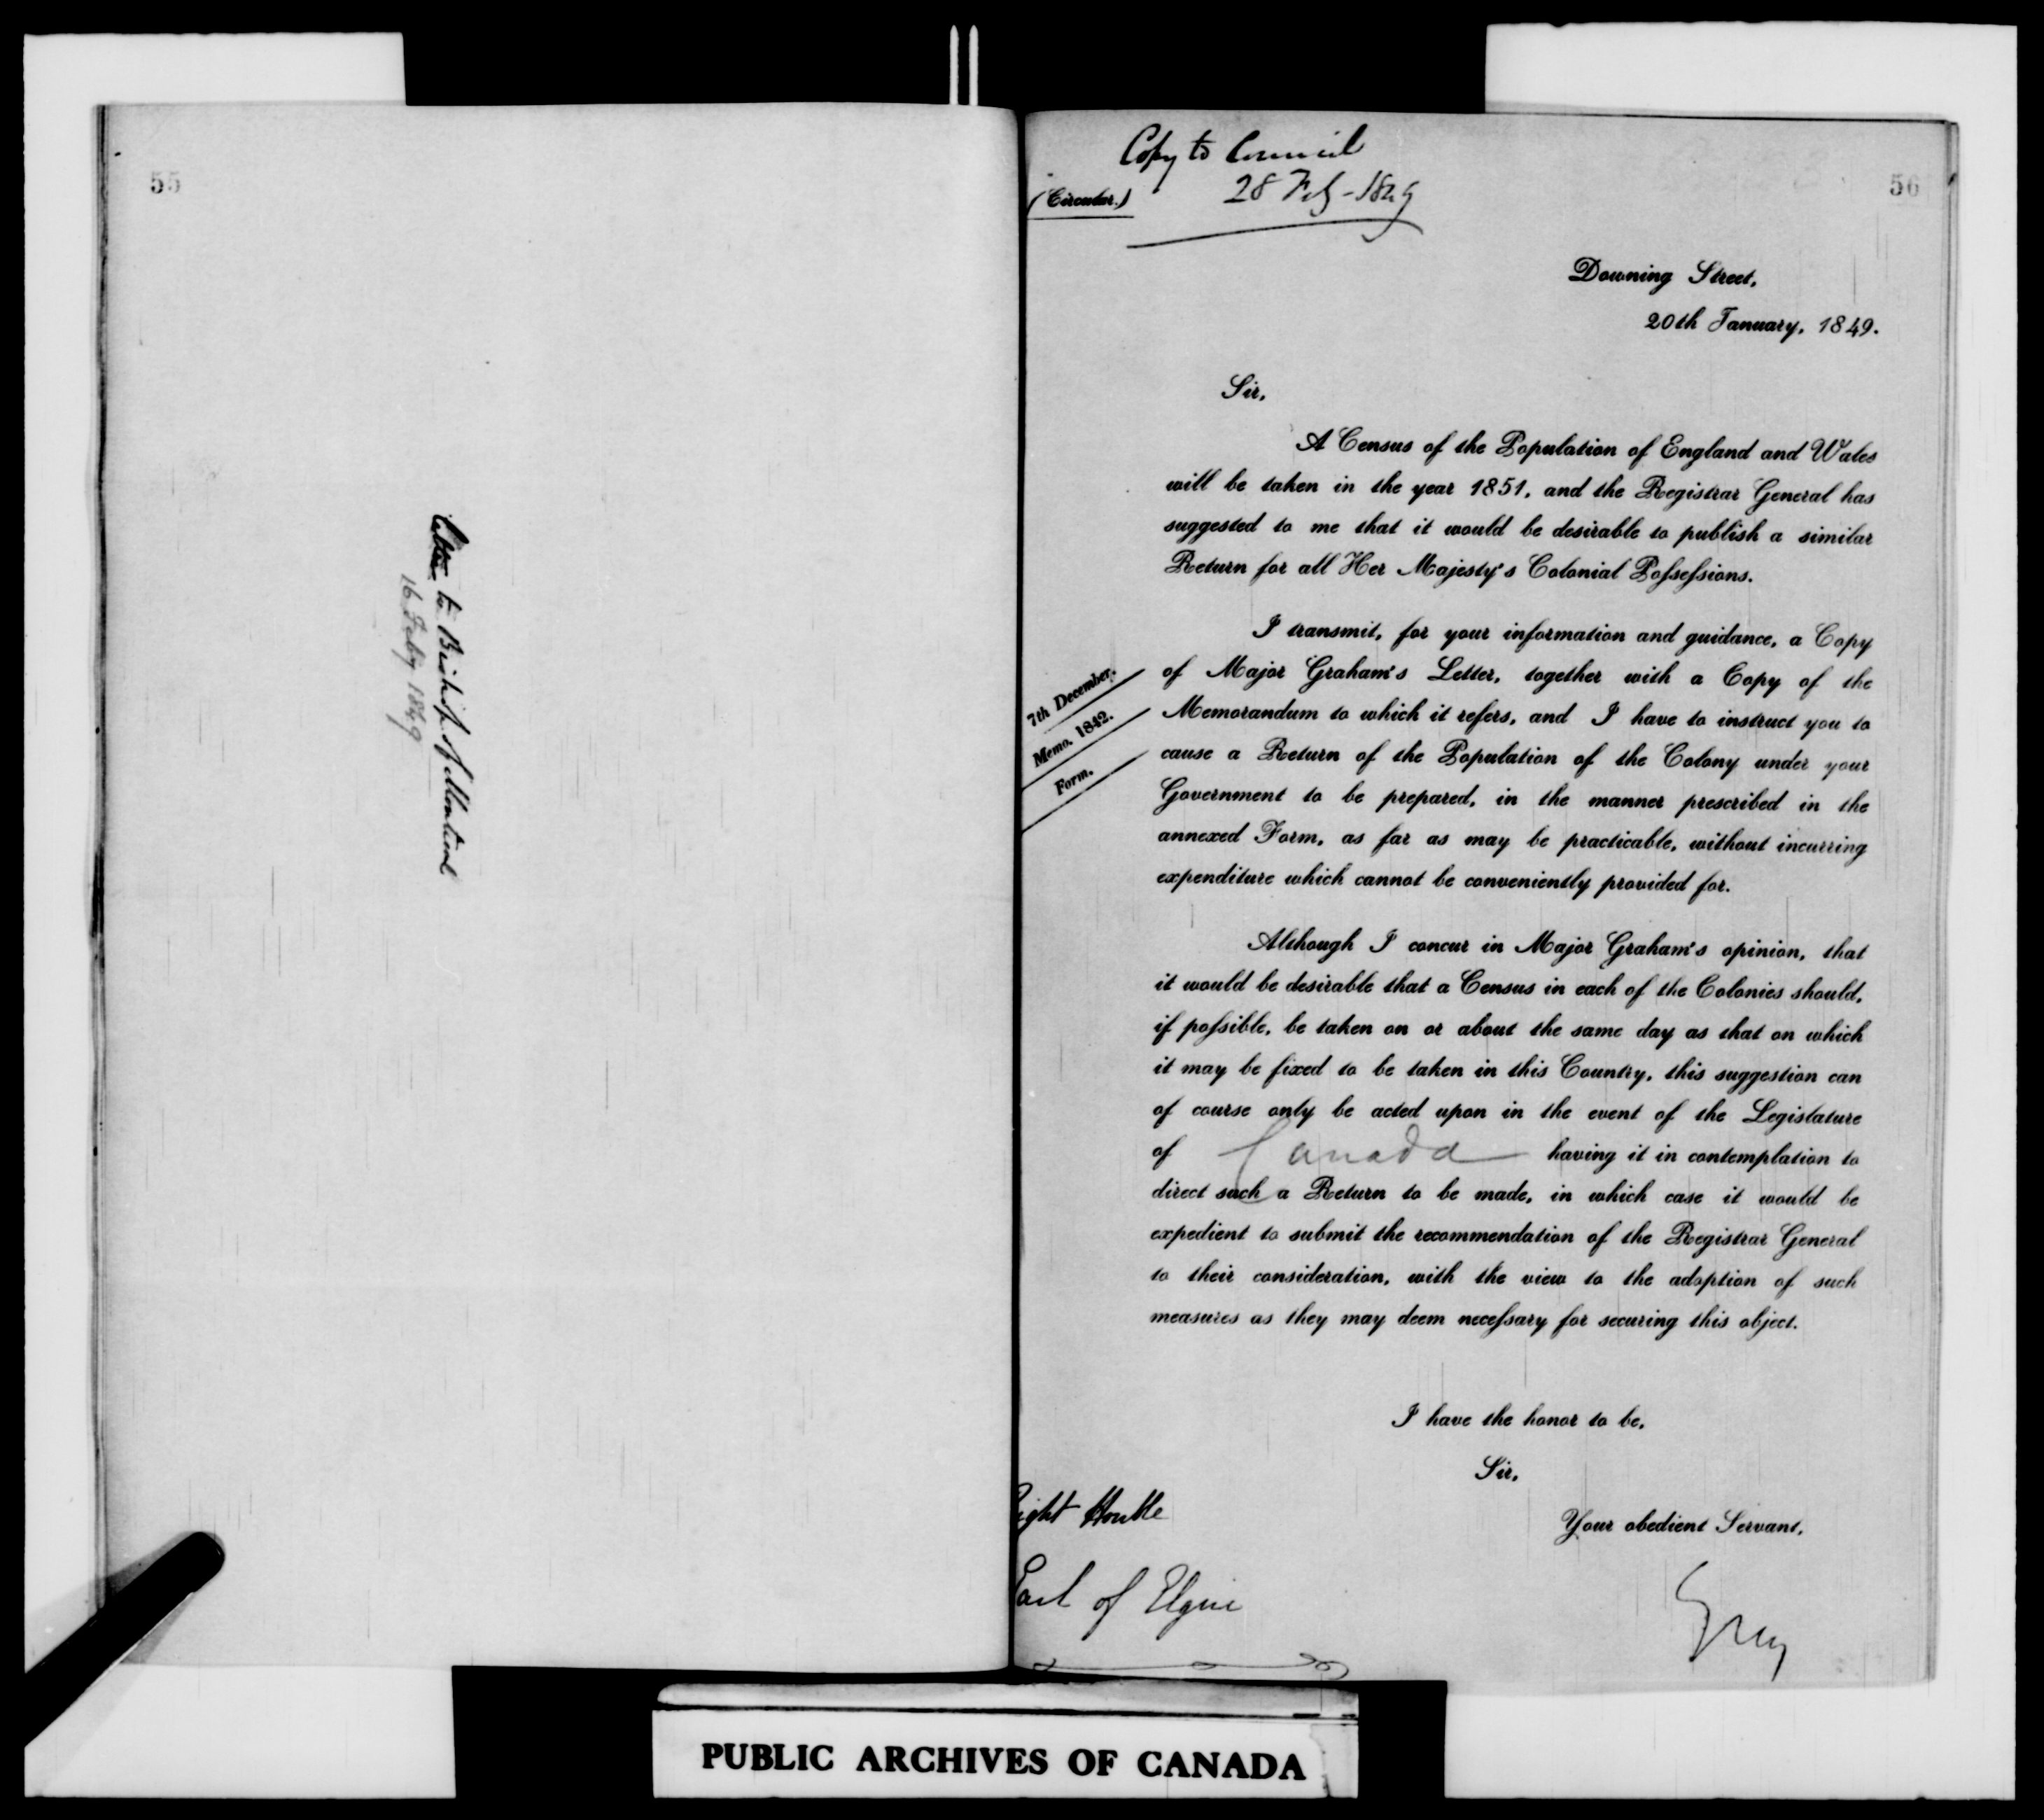 55
Letter to Bishop of Montreal
16 Feby 1849
Copy to Council
28 Feb - 1849
(Circular.)
56
Downing Street,
20th January, 1849.
Sir,
A Census of the Population of England and Wales
will be taken in the year 1851, and the Registrar General has
suggested to me that it would be desirable to publish a similar
Return for all Her Majesty's Colonial Poſseſsions.
I transmit, for your information and guidance, a Copy
of Major Graham's Letter, together with a Copy of the
Memorandum to which it refers, and I have to instruct you to
cause a Return of the Population of the Colony under your
Government to be prepared, in the manner prescribed in the
annexed Form, as far as may be practicable, without incurring
expenditure which cannot be conveniently provided for.
7th December.
Memo. 1842.
Form.
Although I concur in Major Graham's opinion, that
it would be desirable that a Census in each of the Colonies should,
if poſsible, be taken on or about the same day as that on which
it may be fixed to be taken in this Country, this suggestion can
of course only be acted upon in the event of the Legislature
of Canada having it in contemplation to
direct such a Return to be made, in which case it would be
expedient to submit the recommendation of the Registrar General
to their consideration, with the view to the adoption of such
measures as they may deem neceſsary for securing this object.
I have the honor to be,
Sir,
Your obedient Servant,
Grey
Right Honble
Earl of Elgin
PUBLIC ARCHIVES OF CANADA